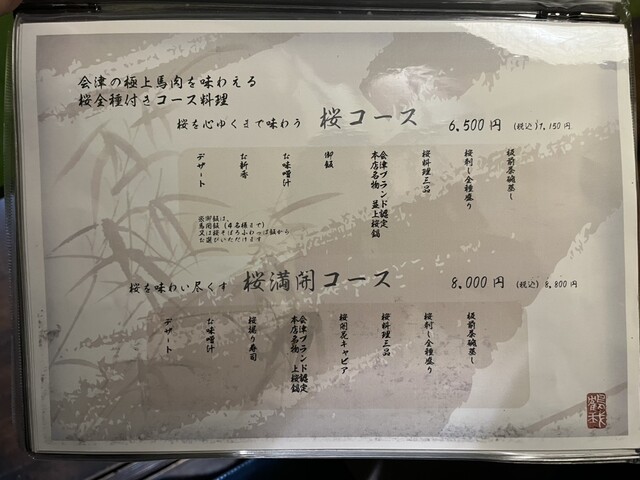 会津の極上馬肉を味わえる
桜全種付きコース料理
桜を心ゆくまで味わう 桜コース 6,500円 (税込)7,150円
桜刺し全種盛り
桜料理三品
会津ブランド認定
本店名物 並上桜鍋
御飯
お味噌汁
お新香
デザート
※御飯は、
馬肉飯(4名様まで)
又は桜そぼろふわっぱ飯から
お選びいただけます
桜を味わい尽くす 桜満開コース 8,000円 (税込)8,800円
桜刺し全種盛り
桜料理三品
桜開花キャビア
会津ブランド認定
本店名物 上桜鍋
桜握り寿司
お味噌汁
デザート